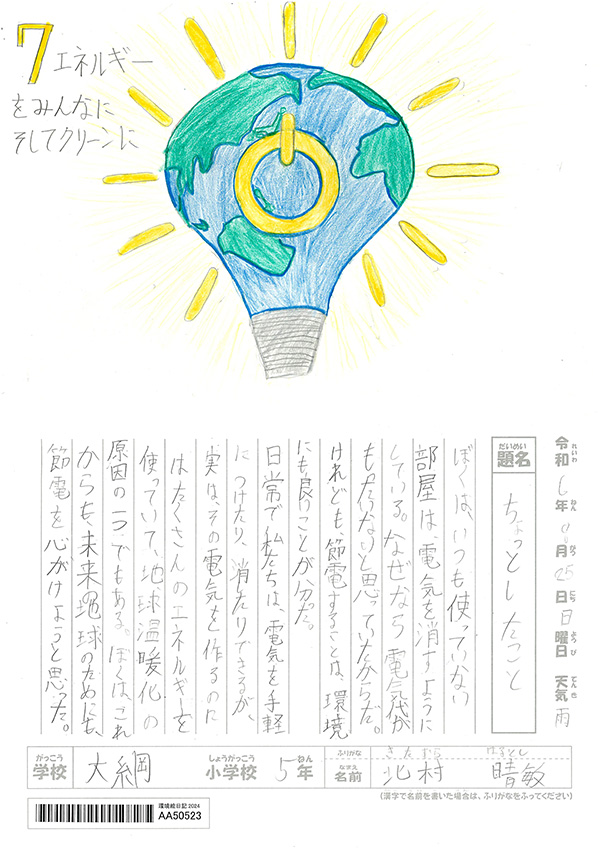 7 エネルギー
をみんなに
そしてクリーンに
令和6年8月25日日曜日 天気 雨
れいわ ねん がつ にち ようび てんき
だいめい
題名 ちょっとしたこと
ぼくは、いつも使っていない
部屋は、電気を消すように
している。なぜなら電気代が
もったいないと思っていたからだ。
けれども、節電することは、環境
にも良いことが分かった。
日常で私たちは、電気を手軽
につけたり、消したりできるが、
実は、その電気を作るのに
はたくさんのエネルギーを
使っていて、地球温暖化の
原因の一つでもある。ぼくは、これ
からも、未来の地球のためにも、
節電を心がけようと思った。
がっこう しょうがっこう ねん ふりがな きたむら はるとし
学校 大綱 小学校 5年 なまえ 名前 北村 晴敏
(漢字で名前を書いた場合は、ふりがなをふってください)
環境絵日記2024
AA50523